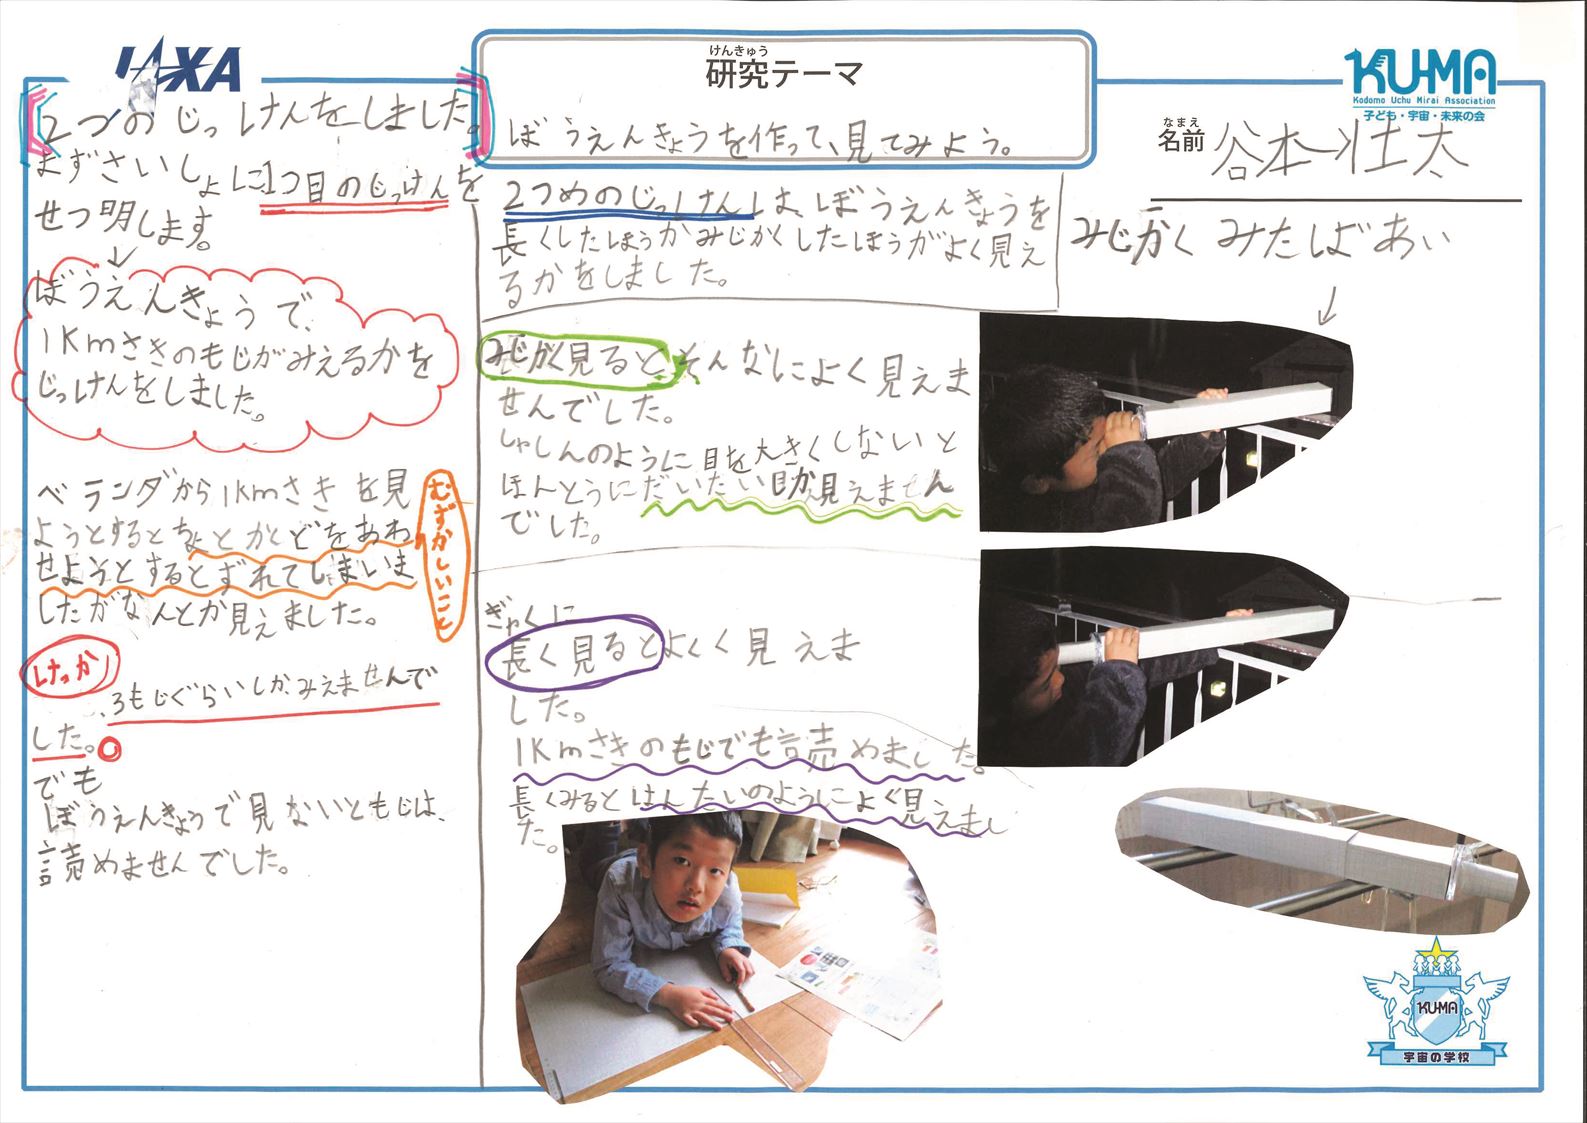 JAXA
けんきゅう
研究テーマ
ぼうえんきょうを作って、見てみよう。
KUMA
Kodomo Uchu Mirai Association
子ども・宇宙・未来の会
なまえ
名前 谷本壮太
2つのじっけんをしました。
まずさいしょに1つ目のじっけんを
せつ明します。
↓
ぼうえんきょうで、
1Kmさきのもじがみえるかを
じっけんをしました。
ベランダから1kmさきを見
ようとするとちょとかくどをあわ
せようとするとずれてしまいま
したがなんとか見えました。
むずかしいこと
けっか
、3もじぐらいしかみえませんで
した。
でも
ぼうえんきょうで見ないともじは、
読めませんでした。
2つめのじっけんは、ぼうえんきょうを
長くしたほうかみじかくしたほうがよく見え
るかをしました。
みじかく見るとそんなによく見えま
せんでした。
しゃしんのように目を大きくしないと
ほんとうにだいたいしか見えません
でした。
ぎゃくに
長く見るとよくく見えま
した。
1Kmさきのもじでも読めました。
長くみるとはんたいのようによく見えまし
た。
みじかくみたばあい
↓
KUMA
宇宙の学校